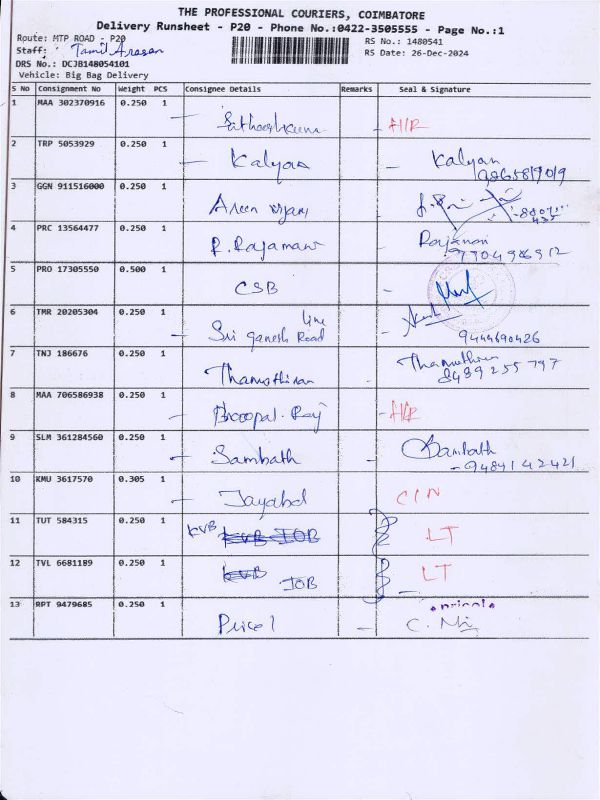 THE PROFESSIONAL COURIERS, COIMBATORE
Delivery Runsheet - P20 - Phone No.:0422-3505555 - Page No.:1
Route: MTP ROAD - P20
RS No.: 1480541
Staff: Tamil Arasan
RS Date: 26-Dec-2024
DRS No.: DCJB148054101
Vehicle: Big Bag Delivery
S No Consignment No Weight PCS Consignee Details Remarks Seal & Signature
1 MAA 302370916 0.250 1
2 TRP 5053929 0.250 1 Kalyan Kalyan
3 GGN 911516000 0.250 1
4 PRC 13564477 0.250 1 Rajanan
7904986912
5 PRO 17305550 0.500 1 CSB
6 TMR 20205304 0.250 1 Sri Ganesh Road line
9444690426
7 TNJ 186676 0.250 1
8489255797
8 MAA 706586938 0.250 1
9 SLM 361284560 0.250 1 Sambath Sambath
10 KMU 3617570 0.305 1 CIN
11 TUT 584315 0.250 1 KVB LT
12 TVL 6681189 0.250 1 IOB LT
13 RPT 9479685 0.250 1 Pricol